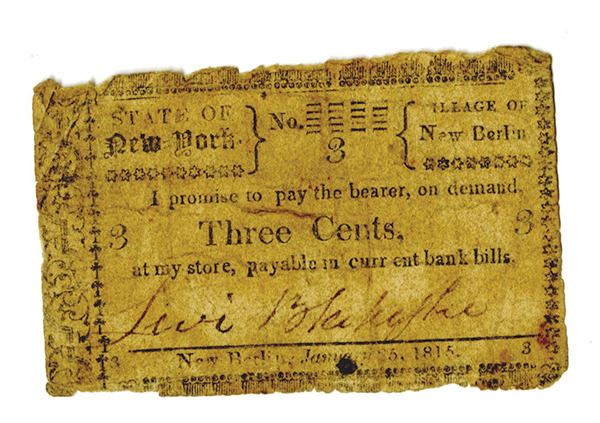 STATE OF
New-York.
No.
3
ILLAGE OF
New Berlin
I promise to pay the bearer, on demand,
3 Three Cents, 3
at my store, payable in curr ent bank bills.
Levi
3 New Berlin, 1815. 3